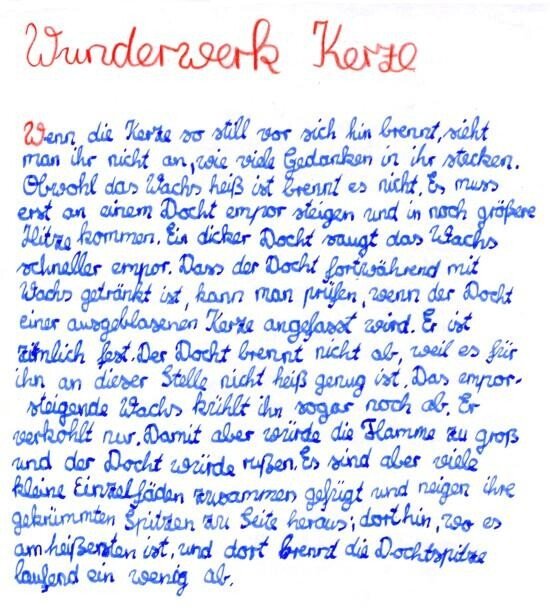 Wunderwerk Kerze
Wenn die Kerze so still vor sich hin brennt, sieht
man ihr nicht an, wie viele Gedanken in ihr stecken.
Obwohl das Wachs heiß ist brennt es nicht. Es muss
erst an einem Docht empor steigen und in noch größere
Hitze kommen. Ein dicker Docht saugt das Wachs
schneller empor. Dass der Docht fortwährend mit
Wachs getränkt ist, kann man prüfen, wenn der Docht
einer ausgeblasenen Kerze angefasst wird. Er ist
ziemlich fest. Der Docht brennt nicht ab, weil es für
ihn an dieser Stelle nicht heiß genug ist. Das empor-
steigende Wachs kühlt ihn sogar noch ab. Er
verkohlt nur. Damit aber würde die Flamme zu groß
und der Docht würde rußen. Es sind aber viele
kleine Einzelfäden zusammen gefügt und neigen ihre
gekrümmten Spitzen zu Seite heraus; dorthin, wo es
am heißersten ist, und dort brennt die Dochtspitze
laufend ein wenig ab.